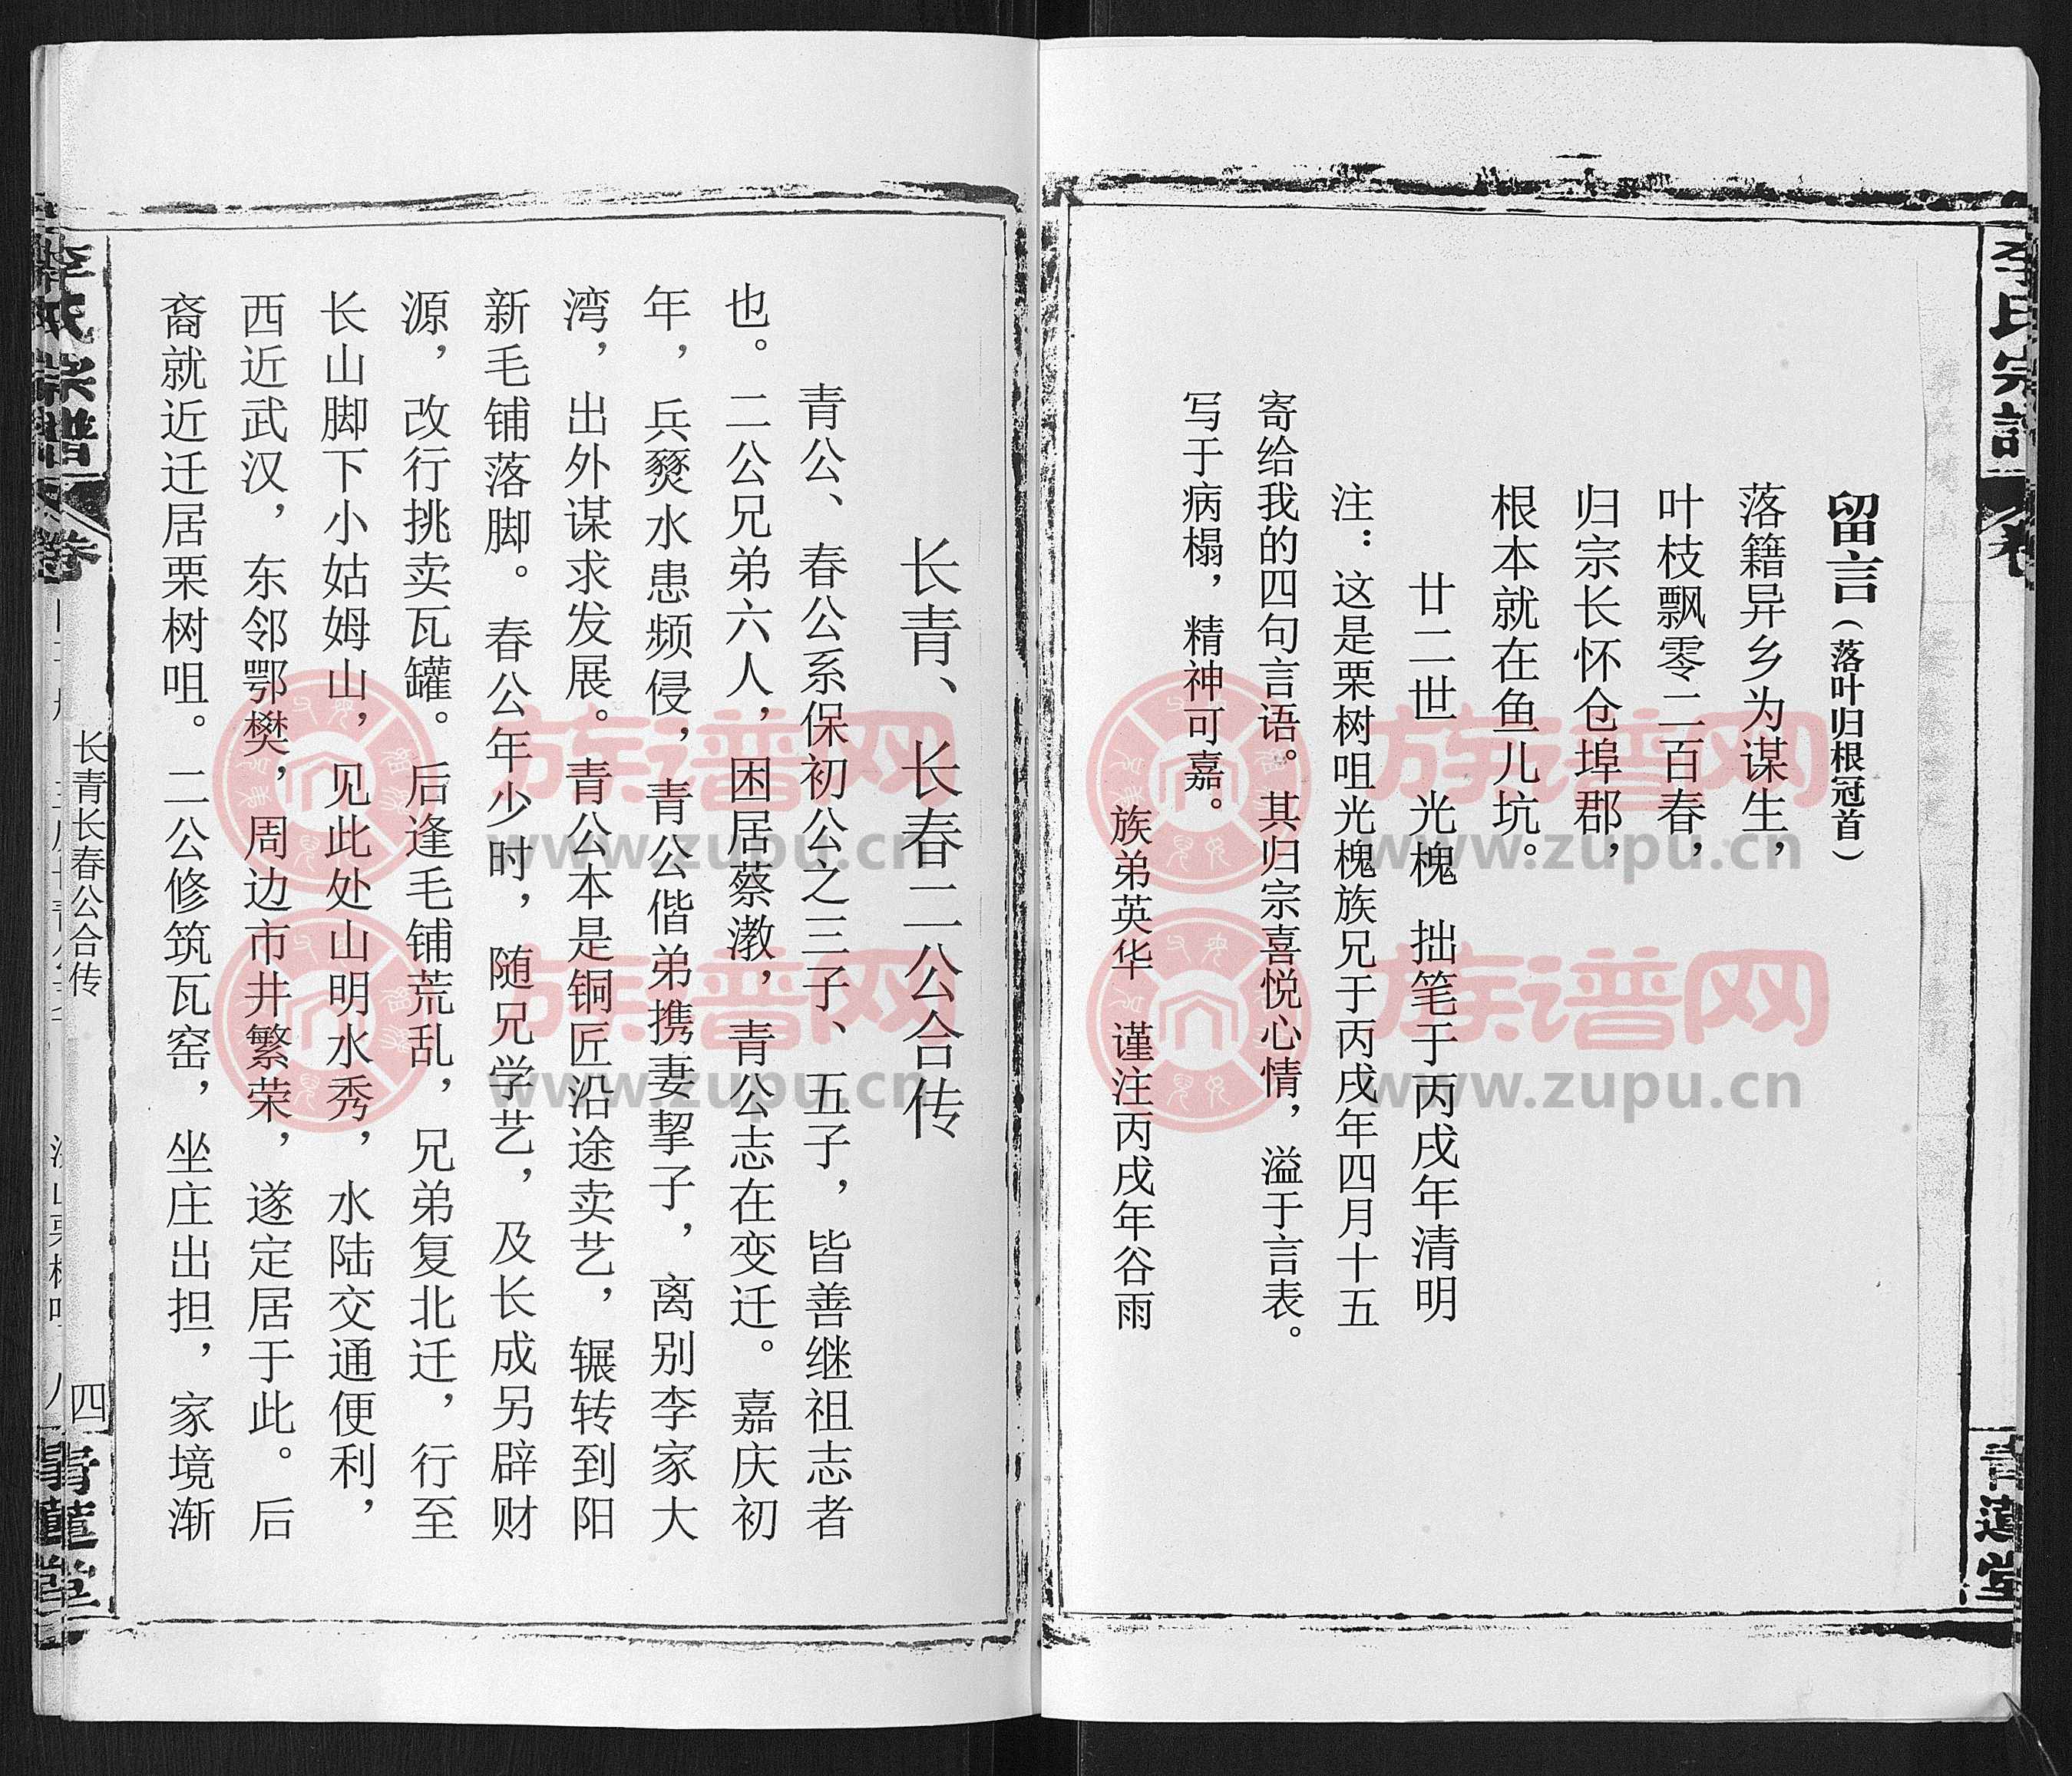 李氏宗譜
留言（落叶归根冠首）
落籍异乡为谋生，
叶枝飘零二百春，
归宗长怀仓埠郡，
根本就在鱼儿坑。
廿二世 光槐 拙笔于丙戌年清明
注：这是栗树咀光槐族兄于丙戌年四月十五
寄给我的四句言语。其归宗喜悦心情，溢于言表。
写于病榻，精神可嘉。
族弟英华 谨注丙戌年谷雨
长青、长春二公合传
青公、春公系保初公之三子、五子，皆善继祖志者
也。二公兄弟六人，困居蔡漖，青公志在变迁。嘉庆初
年，兵燹水患频侵，青公偕弟携妻挈子，离别李家大
湾，出外谋求发展。青公本是铜匠沿途卖艺，辗转到阳
新毛铺落脚。春公年少时，随兄学艺，及长成另辟财
源，改行挑卖瓦罐。后逢毛铺荒乱，兄弟复北迁，行至
长山脚下小姑姆山，见此处山明水秀，水陆交通便利，
西近武汉，东邻鄂樊，周边市井繁荣，遂定居于此。后
裔就近迁居栗树咀。二公修筑瓦窑，坐庄出担，家境渐
李氏宗譜
卷
长青长春公合传
四
青蓮堂
族谱网
www.zupu.cn
族谱网
www.zupu.cn
族谱网
www.zupu.cn
族谱网
www.zupu.cn